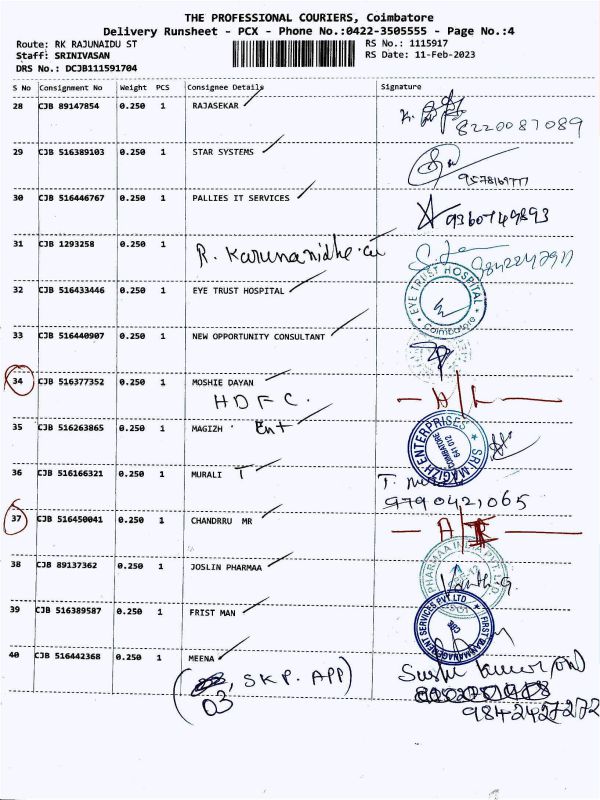 THE PROFESSIONAL COURIERS, Coimbatore
Delivery Runsheet - PCX - Phone No.:0422-3505555 - Page No.:4
Route: RK RAJUNAIDU ST RS No.: 1115917
Staff: SRINIVASAN RS Date: 11-Feb-2023
DRS No.: DCJB111591704
S No Consignment No Weight PCS Consignee Details Signature
28 CJB 89147854 0.250 1 RAJASEKAR
8220087089
29 CJB 516389103 0.250 1 STAR SYSTEMS
30 CJB 516446767 0.250 1 PALLIES IT SERVICES
9360749893
31 CJB 1293258 0.250 1 R. Karunanidhe
32 CJB 516433446 0.250 1 EYE TRUST HOSPITAL
EYE TRUST HOSPITAL
Coimbatore
33 CJB 516440907 0.250 1 NEW OPPORTUNITY CONSULTANT
34 CJB 516377352 0.250 1 MOSHIE DAYAN
HDFC.
35 CJB 516263865 0.250 1 MAGIZH Ent
SRI MAGIZH ENTERPRISES
COIMBATORE
641 012
36 CJB 516166321 0.250 1 MURALI T
9790421065
37 CJB 516450041 0.250 1 CHANDRRU MR
38 CJB 89137362 0.250 1 JOSLIN PHARMAA
39 CJB 516389587 0.250 1 FRIST MAN
FIRST MANMANAGEMENT SERVICES PVT LTD
40 CJB 516442368 0.250 1 MEENA
, SKP. APP)
03
9842427272